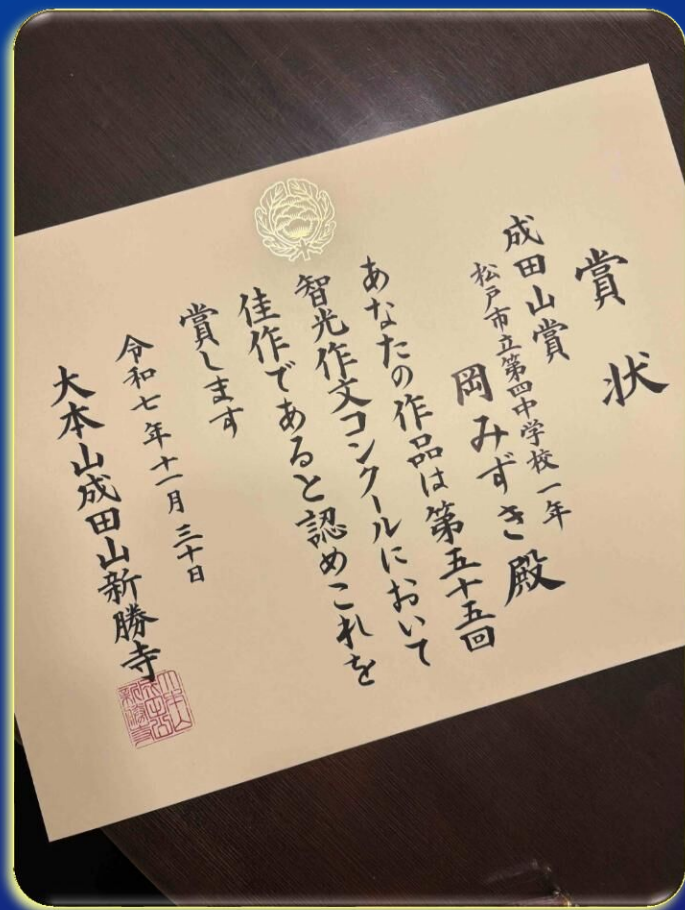 賞状
成田山賞
松戸市立第四中学校一年
岡みずき殿
あなたの作品は第五十五回
智光作文コンクールにおいて
佳作であると認めこれを
賞します
令和七年十一月三十日
大本山成田山新勝寺